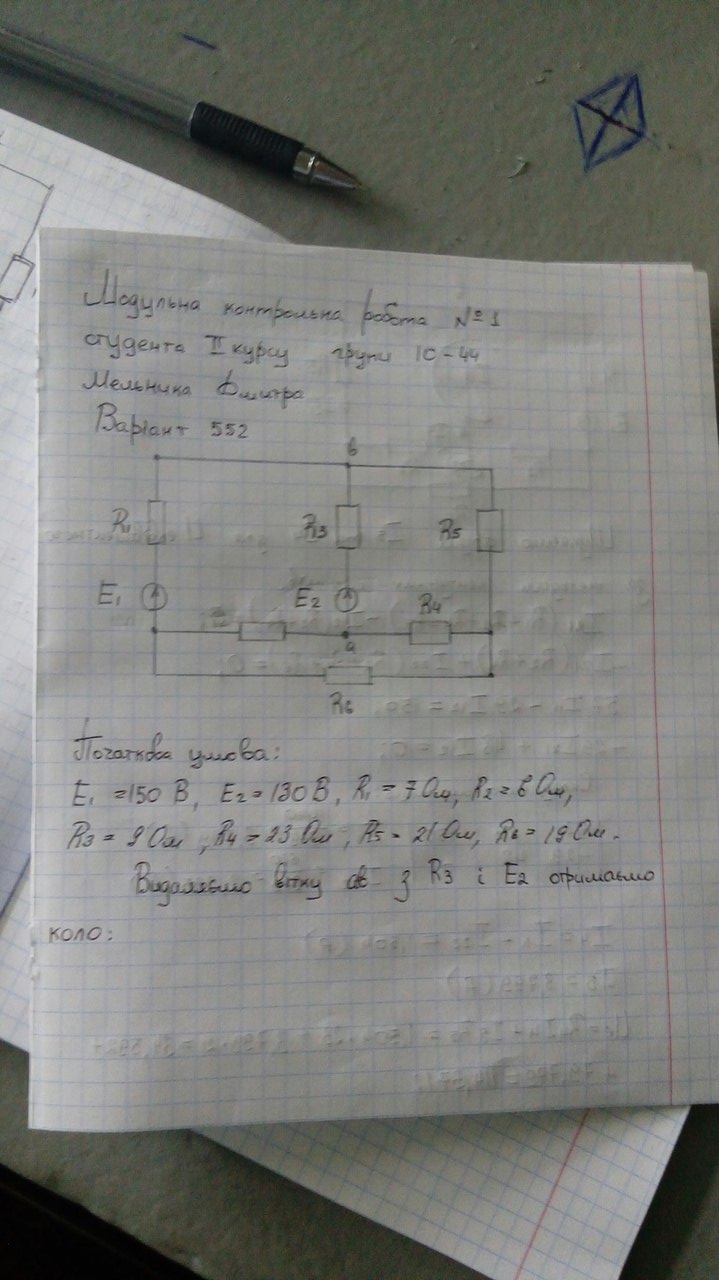 Модульна контрольна робота №1
студента II курсу групи ІС-44
Мельника Дмитра
Варіант 552
в
R1 R3 R5
E1 E2 R4
а
R6
Початкова умова:
E1 =150 В, E2 = 130 В, R1 = 7 Ом, R2 = 6 Ом,
R3 = 9 Ом, R4 = 23 Ом, R5 = 21 Ом, R6 = 19 Ом.
Видаляємо вітку ав з R3 і E2 отримаємо
коло: